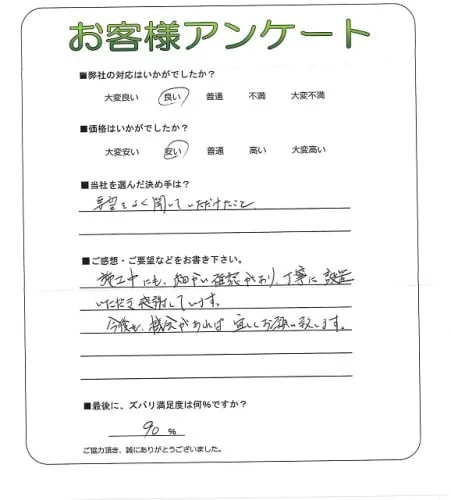 お客様アンケート
■弊社の対応はいかがでしたか?
大変良い 良い 普通 不満 大変不満
■価格はいかがでしたか?
大変安い 安い 普通 高い 大変高い
■当社を選んだ決め手は?
要望をよく聞いていただけたこと
■ご感想・ご要望などをお書き下さい。
施工中にも、細かい確認があり、丁寧に設置
いただき感謝しています。
今後も、機会があれば宜しくお願い致します。
■最後に、ズバリ満足度は何%ですか?
90 %
ご協力頂き、誠にありがとうございました。